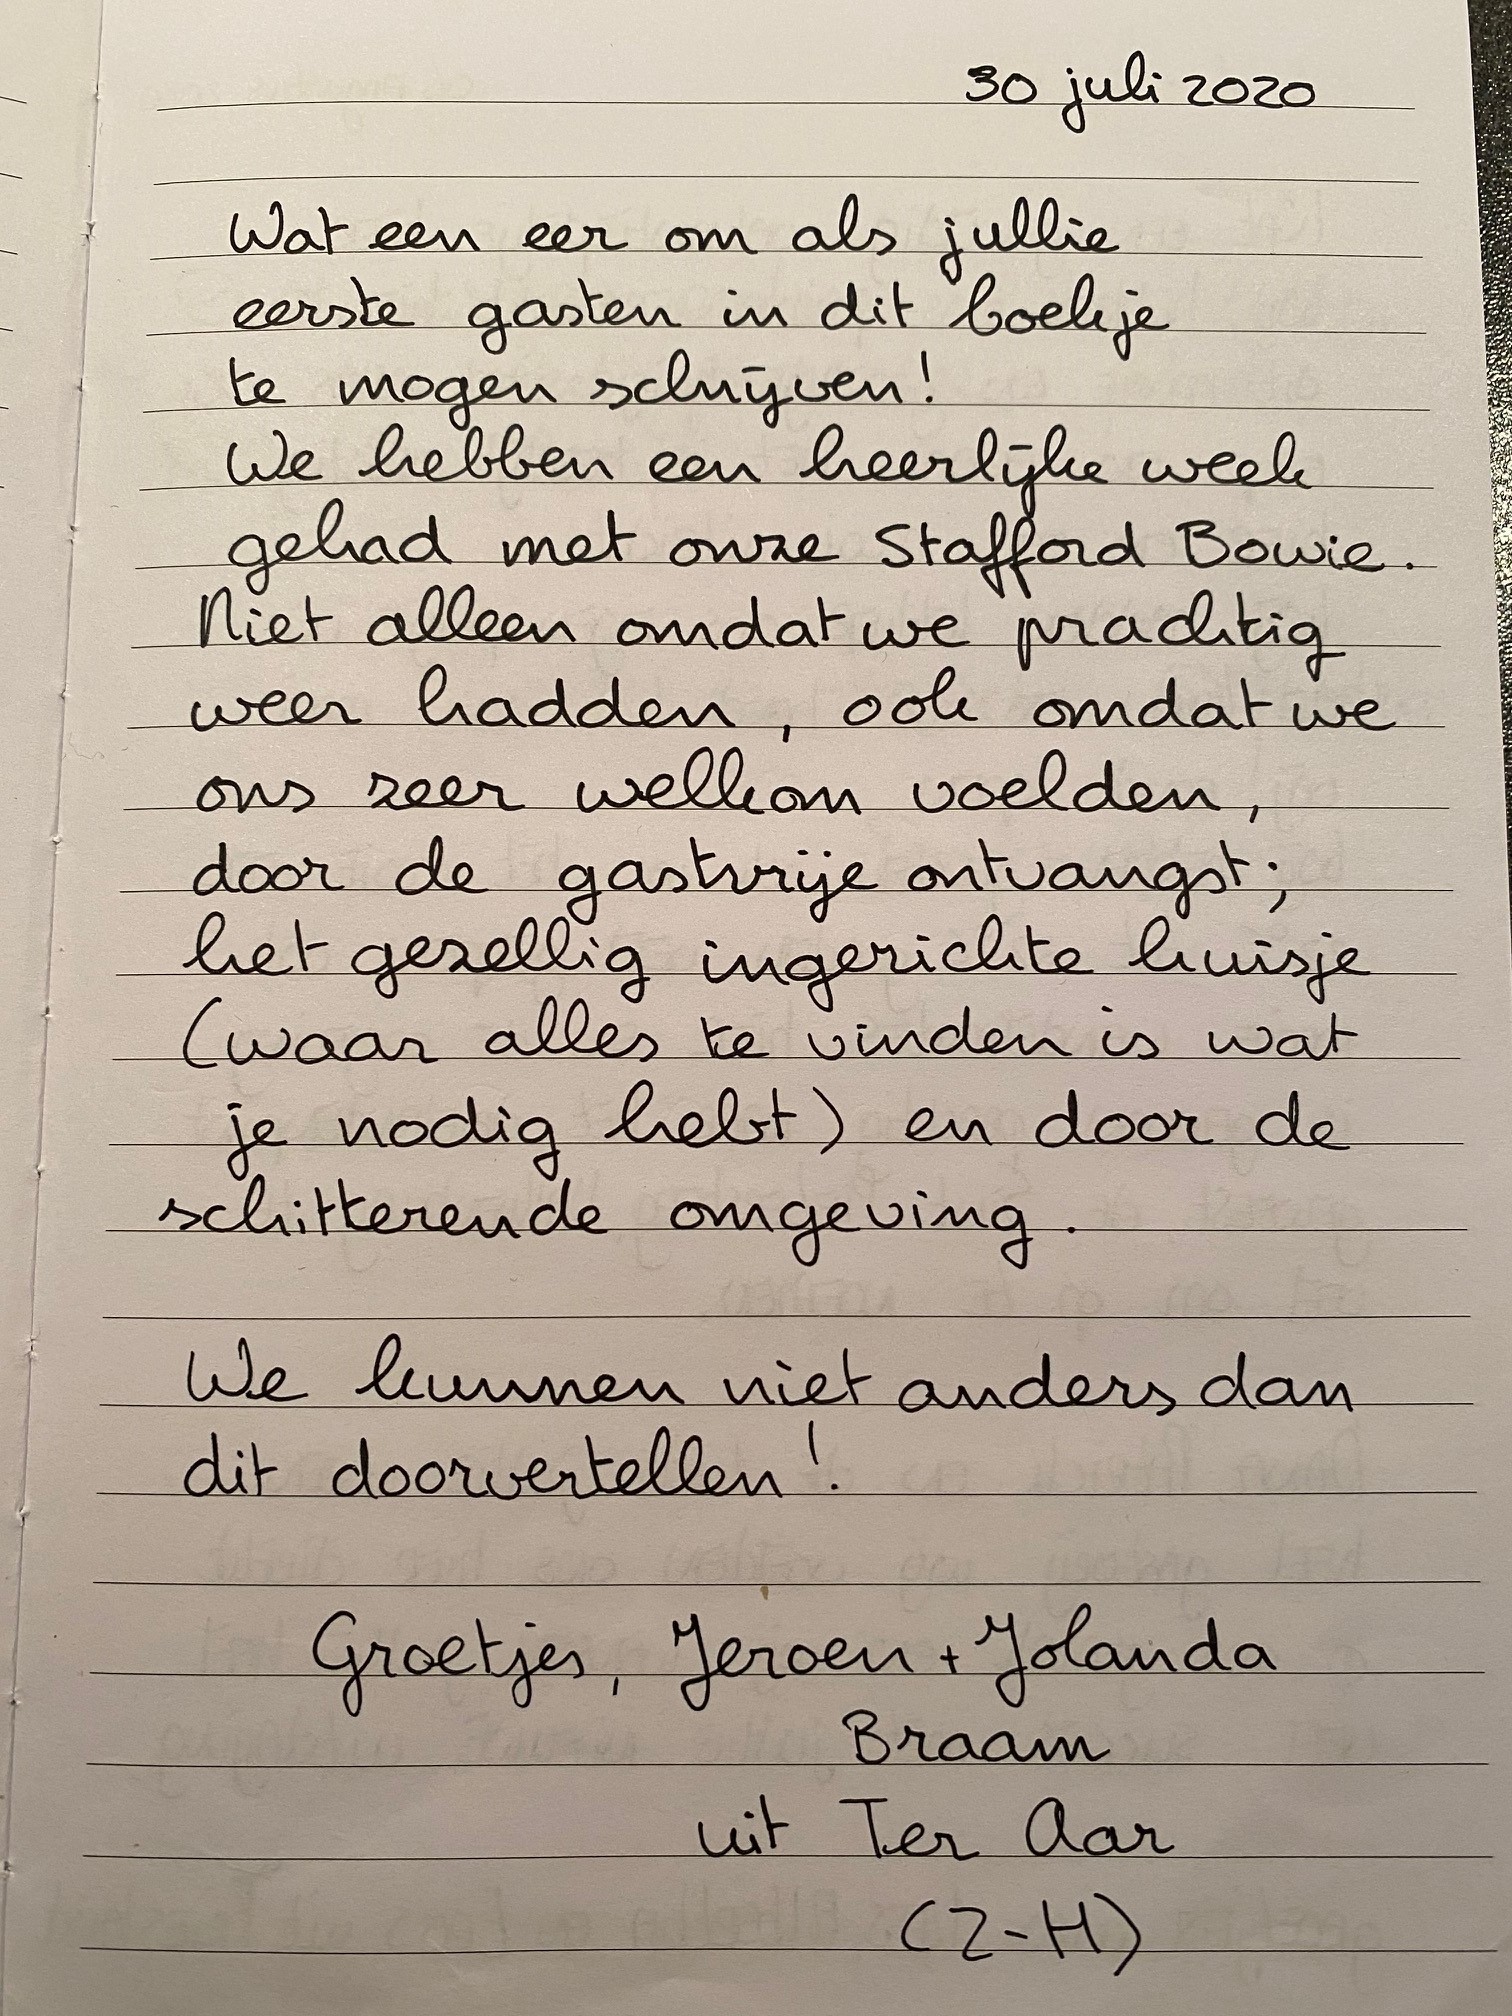 30 juli 2020
Wat een eer om als jullie
eerste gasten in dit boekje
te mogen schrijven!
We hebben een heerlijke week
gehad met onze Stafford Bowie.
Niet alleen omdat we prachtig
weer hadden, ook omdat we
ons zeer welkom voelden,
door de gastvrije ontvangst;
het gezellig ingerichte huisje
(waar alles te vinden is wat
je nodig hebt) en door de
schitterende omgeving.
We kunnen niet anders dan
dit doorvertellen!
Groetjes, Jeroen + Jolanda
Braam
uit Ter Aar
(Z-H)